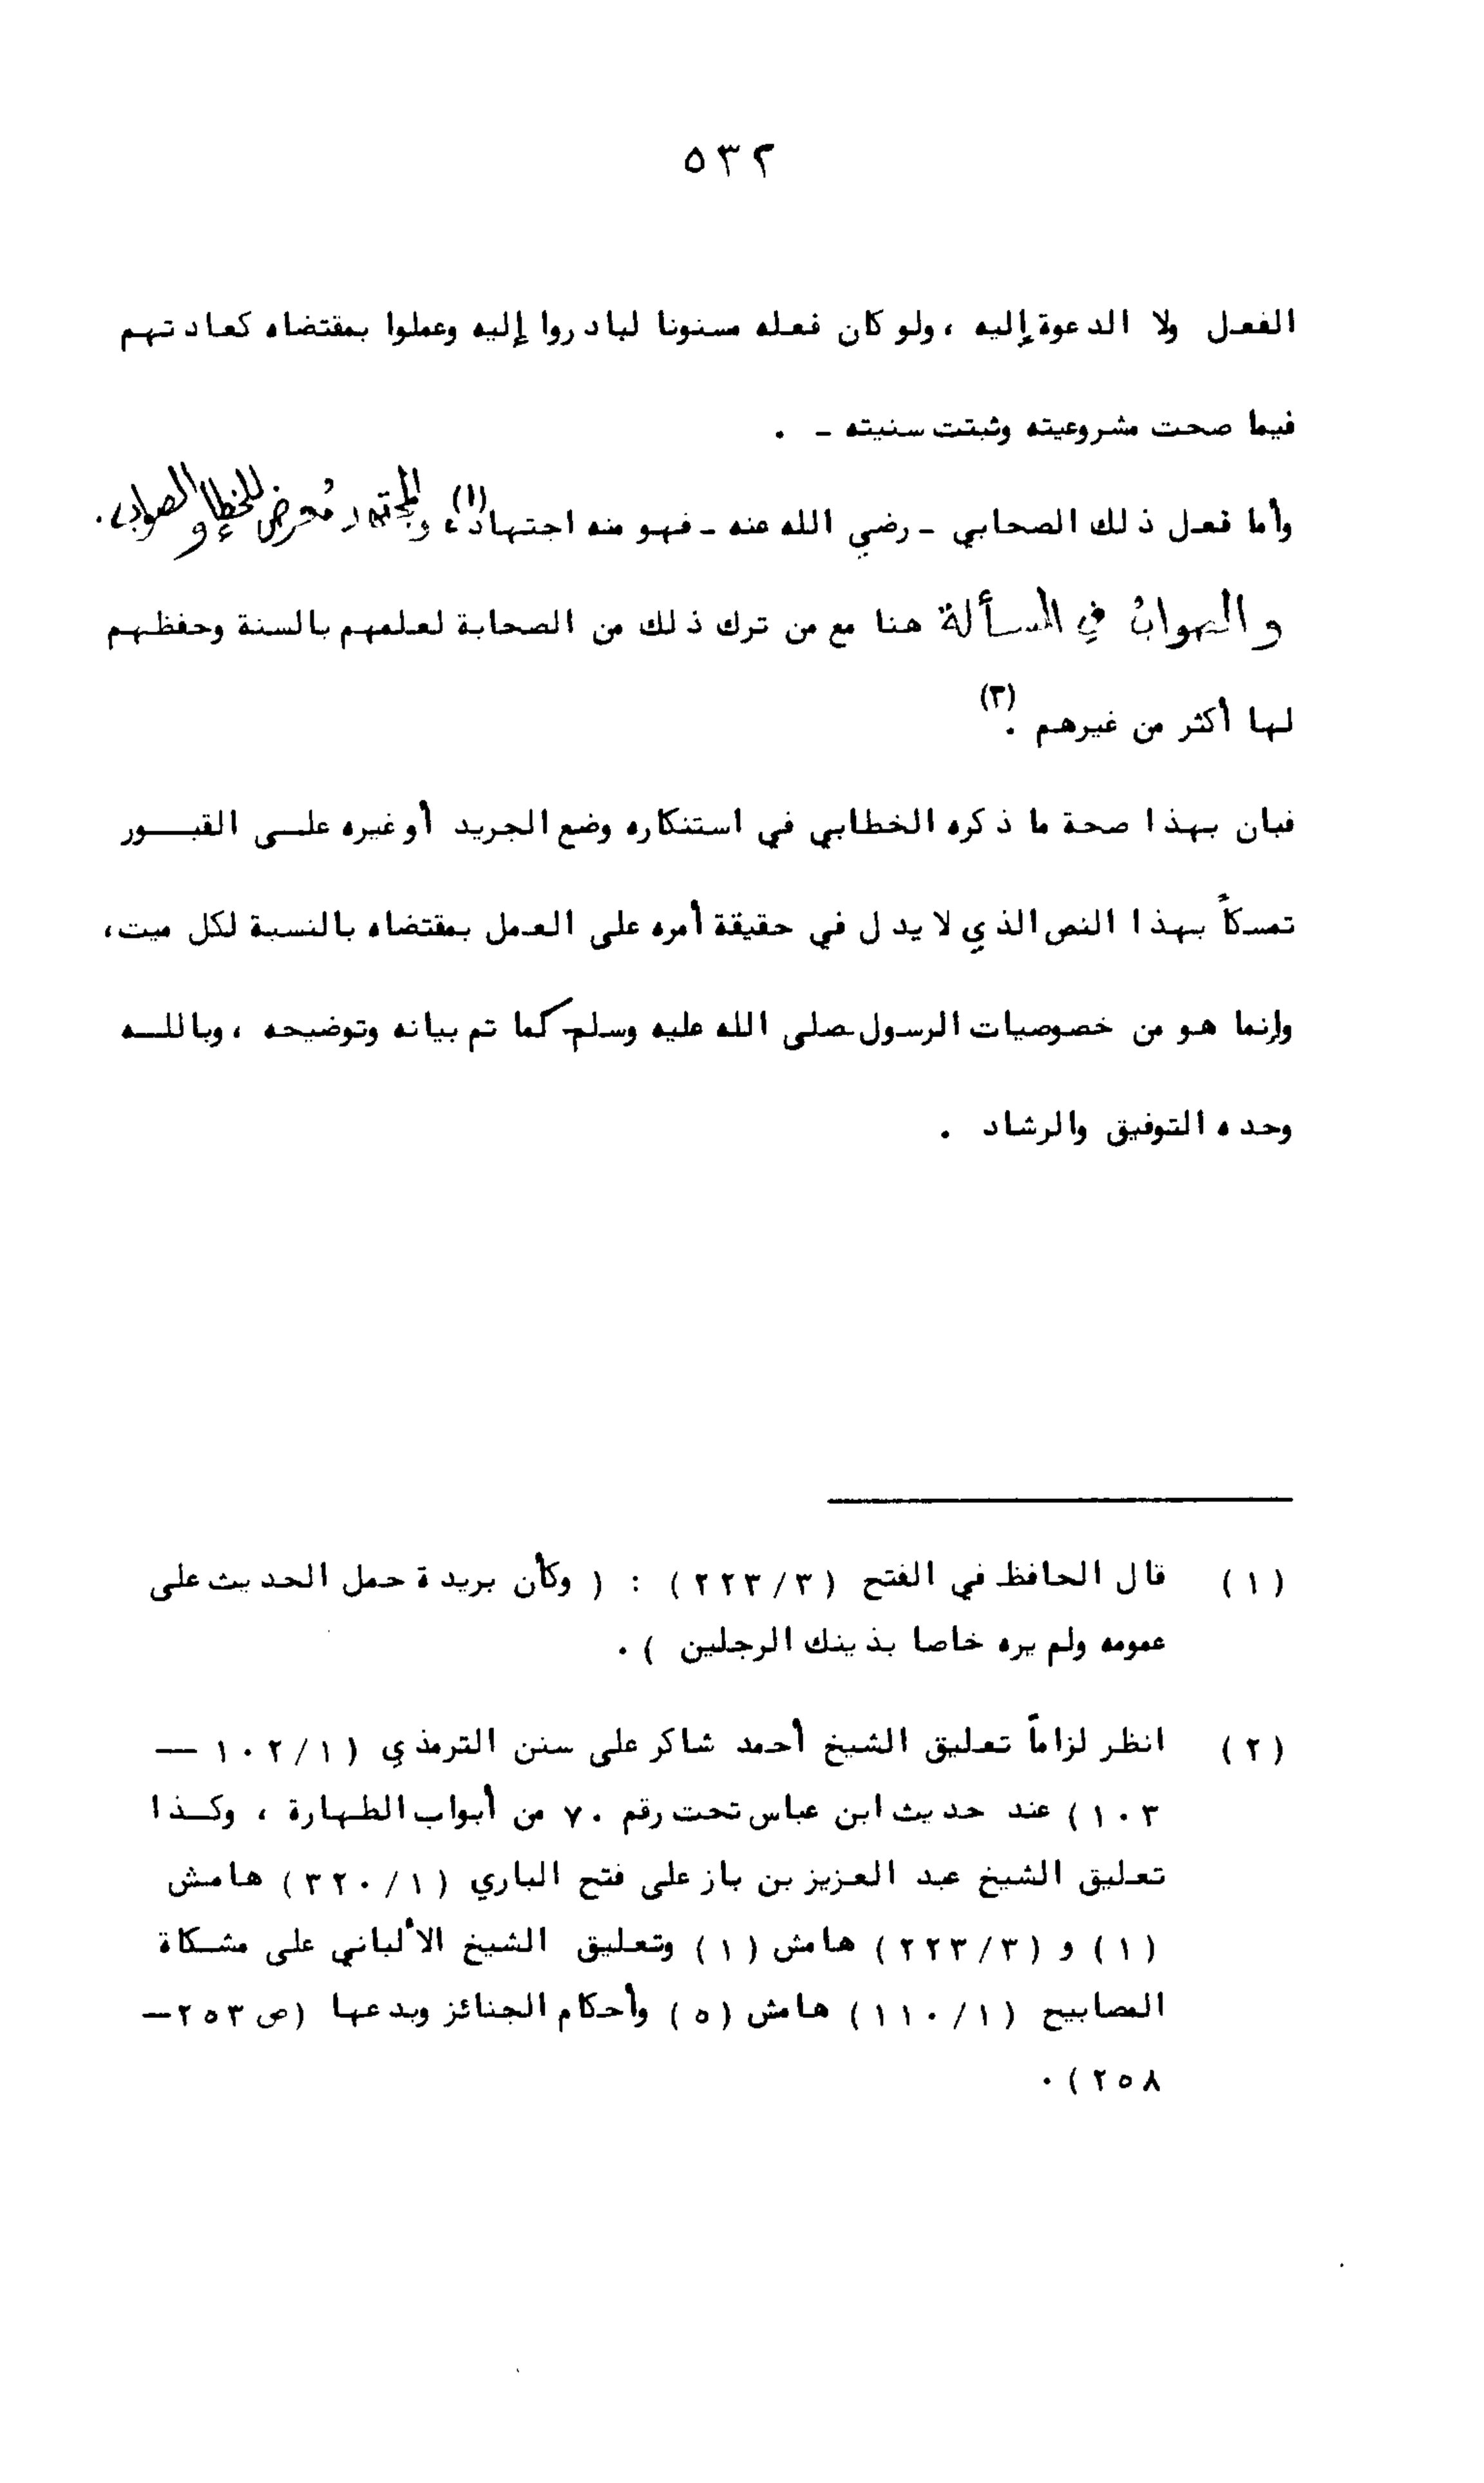 ٥٣٢
الفعل ولا الدعوة إليه ، ولو كان فعله مسنونا لبادروا إليه وعملوا بمقتضاه كعادتهم
فيما صحت مشروعيته وثبتت سنيته - .
وأما فعل ذلك الصحابي - رضي الله عنه - فهو منه اجتهاد (١)، والمجتهد مُعرض للخطإ والصواب .
والصواب في المسألة هنا مع من ترك ذلك من الصحابة لعلمهم بالسنة وحفظهم
لها أكثر من غيرهم . (٢)
فبان بهذا صحة ما ذكره الخطابي في استنكاره وضع الجريد أو غيره على القبور
تمسكاً بهذا النص الذي لا يدل في حقيقة أمره على العمل بمقتضاه بالنسبة لكل ميت ،
وإنما هو من خصوصيات الرسول صلى الله عليه وسلم كما تم بيانه وتوضيحه ، وبالله
وحده التوفيق والرشاد .
(١) قال الحافظ في الفتح (٣/٢٢٣) : ( وكأن بريدة حمل الحديث على
عمومه ولم يره خاصا بذينك الرجلين ) .
(٢) انظر لزاماً تعليق الشيخ أحمد شاكر على سنن الترمذي (١/١٠٢ —
١٠٣) عند حديث ابن عباس تحت رقم ٧٠ من أبواب الطهارة ، وكذا
تعليق الشيخ عبد العزيز بن باز على فتح الباري (١/٣٢٠) هامش
(١) و (٣/٢٢٣) هامش (١) وتعليق الشيخ الألباني على مشكاة
المصابيح (١/١١٠) هامش (٥) وأحكام الجنائز وبدعها (ص ٢٥٣ —
٢٥٨) .